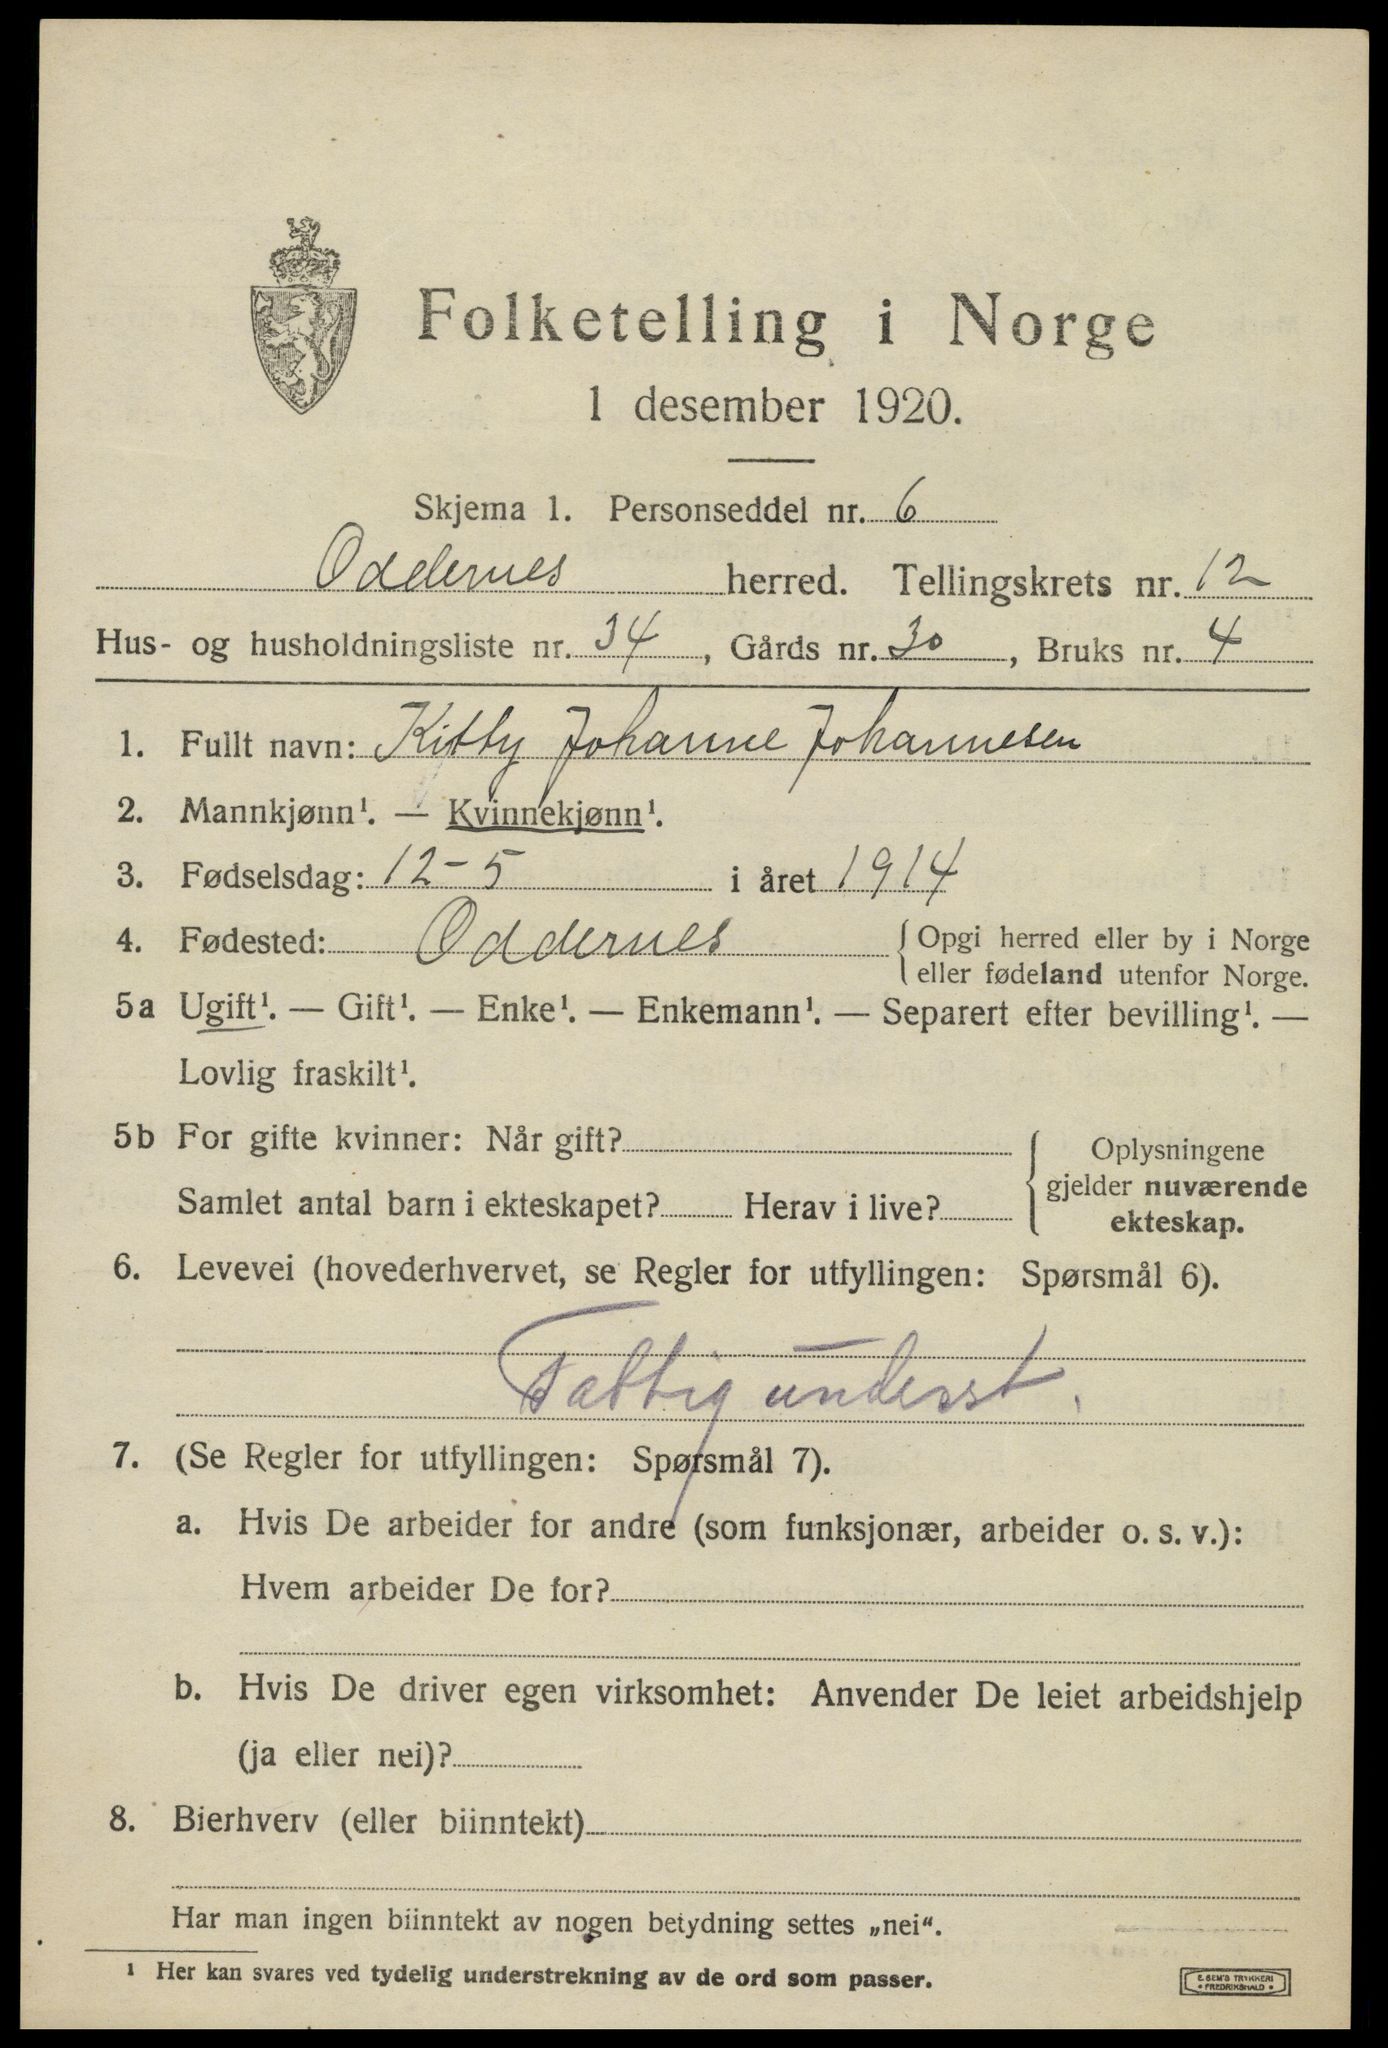 Folketelling i Norge
1 desember 1920.
Skjema 1. Personseddel nr. 6
Oddernes herred. Tellingskrets nr. 12
Hus- og husholdningsliste nr. 34, Gårds nr. 30, Bruks nr. 4
1. Fullt navn: Kitty Johanne Johannesen
2. Mannkjønn¹. — Kvinnekjønn¹.
3. Fødselsdag: 12-5 i året 1914
4. Fødested: Oddernes { Opgi herred eller by i Norge
eller fødeland utenfor Norge.
5a Ugift¹. — Gift¹. — Enke¹. — Enkemann¹. — Separert efter bevilling¹. —
Lovlig fraskilt¹.
5b For gifte kvinner: Når gift? { Oplysningene
gjelder nuværende
ekteskap.
Samlet antal barn i ekteskapet? Herav i live?
6. Levevei (hovederhvervet, se Regler for utfyllingen: Spørsmål 6).
Fattig underst.
7. (Se Regler for utfyllingen: Spørsmål 7).
a. Hvis De arbeider for andre (som funksjonær, arbeider o. s. v.):
Hvem arbeider De for?
b. Hvis De driver egen virksomhet: Anvender De leiet arbeidshjelp
(ja eller nei)?
8. Bierhverv (eller biinntekt)
Har man ingen biinntekt av nogen betydning settes „nei“.
¹ Her kan svares ved tydelig understrekning av de ord som passer.
E. SEM'S TRYKKERI
• FREDRIKSHALD •